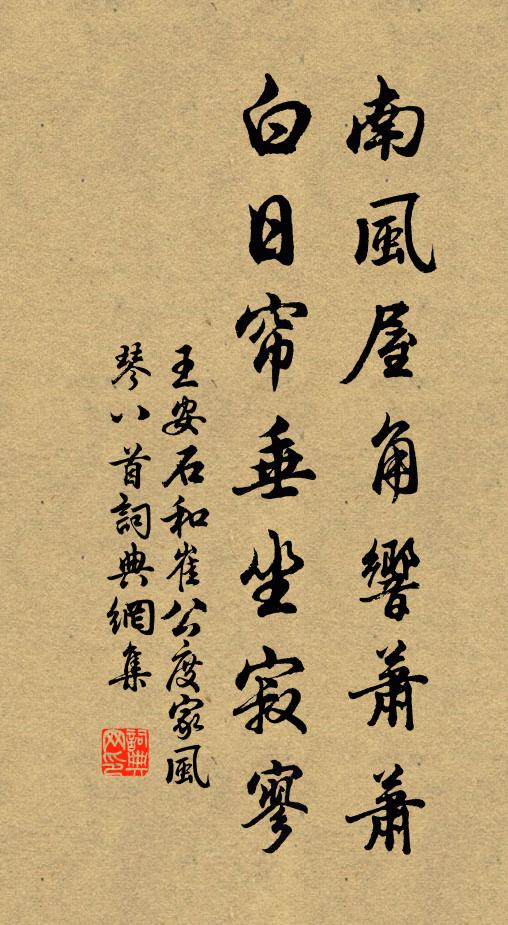 南風屋角響蕭蕭
白日帘垂坐寂寥
王安石和崔公度家風
琴八首詞典網集
詞典網印